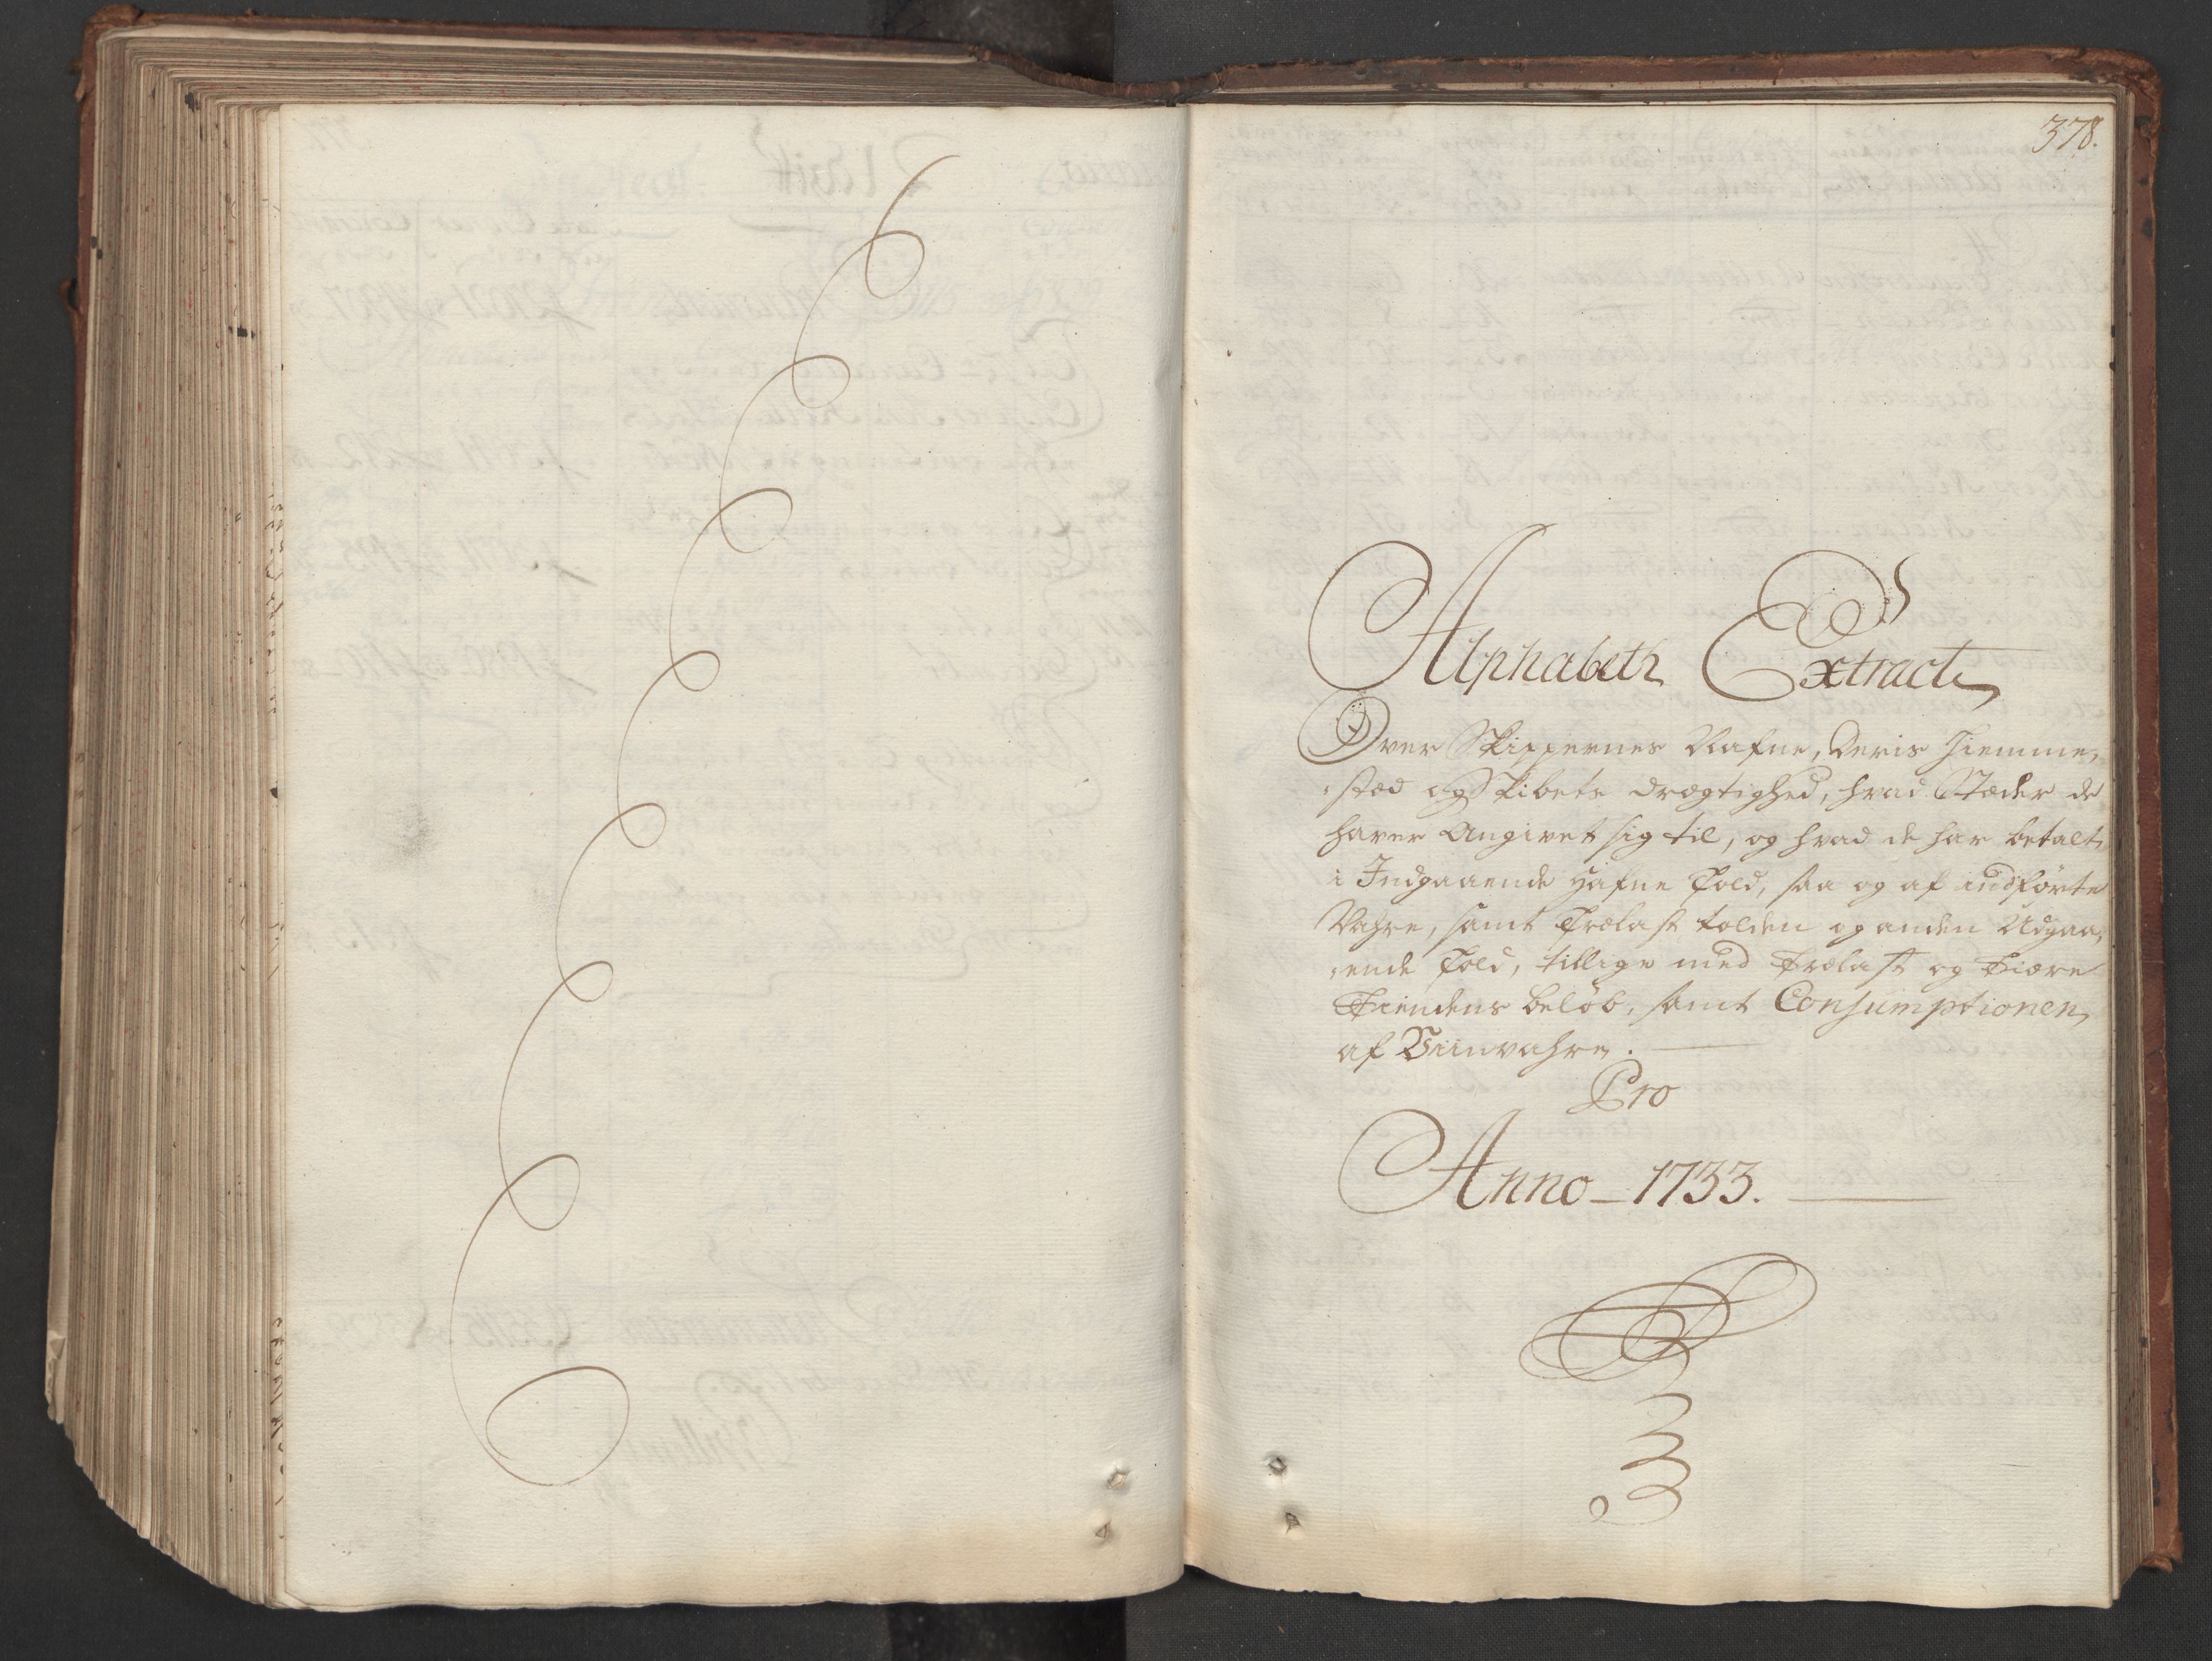 378.
Alphabeth Extract
Over Skippernes Nafne, Deris Hiemme,
stæd og Skibets drægtighed, hvad Stæder de
haver Angivet sig til, og hvad de har betalt
i Indgaaende Hafne Told, saa og af indførte
Vahre, samt Trælast tolden og anden Udgaa,
ende Told, tillige med Trælast og Tiære
Tiendens beløb, samt Consumptionen
af Viinvahre.
Pro
Anno 1733.